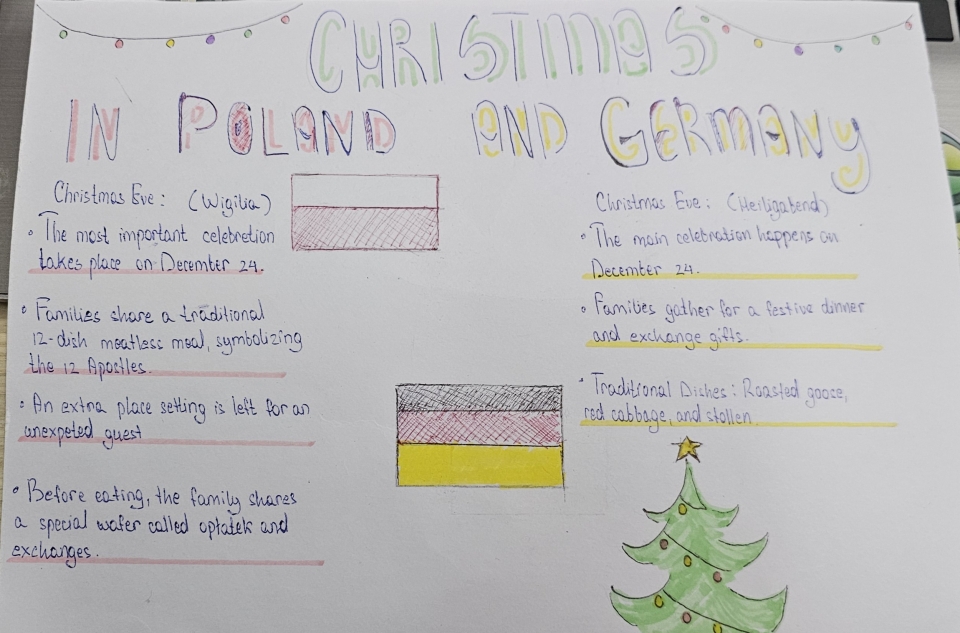 CHRISTMAS
IN POLAND AND GERMANY
Christmas Eve: (Wigilia)
• The most important celebretion
takes place on December 24.
• Families share a traditional
12-dish meatless meal, symbolizing
the 12 Apostles.
• An extra place setting is left for an
unexpeted guest
• Before eating, the family shares
a special wafer called opłatek and
exchanges.
Christmas Eve: (Heiligabend)
• The main celebration happens on
December 24.
• Families gather for a festive dinner
and exchange gifts.
• Traditional Diches: Roasted gooze,
red cabbage, and stollen.